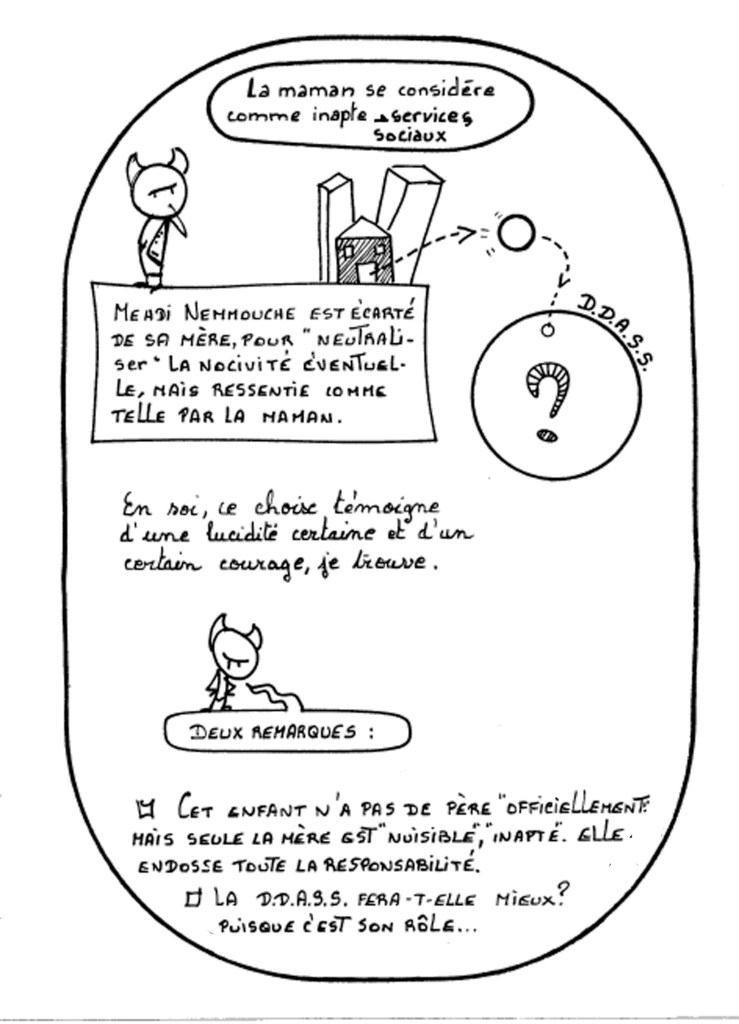 La maman se considère
comme inapte → services
sociaux
MEHDI NEMMOUCHE EST ÉCARTÉ
DE SA MÈRE, POUR "NEUTRALI-
ser" LA NOCIVITÉ ÉVENTUEL-
LE, MAIS RESSENTIE COMME
TELLE PAR LA MAMAN.
D.D.A.S.S.
?
En soi, ce choix témoigne
d'une lucidité certaine et d'un
certain courage, je trouve.
DEUX REMARQUES :
CET ENFANT N'A PAS DE PÈRE "OFFICIELLEMENT".
MAIS SEULE LA MÈRE EST "NUISIBLE", "INAPTE". ELLE
ENDOSSE TOUTE LA RESPONSABILITÉ.
LA D.D.A.S.S. FERA-T-ELLE MIEUX?
PUISQUE C'EST SON RÔLE...